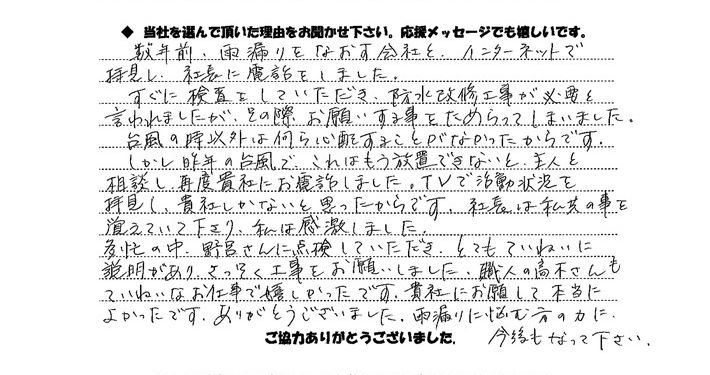 ◆ 当社を選んで頂いた理由をお聞かせ下さい。応援メッセージでも嬉しいです。
数年前、雨漏りをなおす会社と、インターネットで
拝見し、社長に電話をしました。
すぐに検査をしていただき、防水改修工事が必要と
言われましたが、その際、お願いする事をためらってしまいました。
台風の時以外は何ら心配することがなかったからです。
しかし昨年の台風で、これはもう放置できないと、主人と
相談し、再度貴社にお電話しました。TVで活動状況を
拝見し、貴社しかないと思ったからです。社長は私共の事を
覚えていて下さり、私は感激しました。
多忙の中、野呂さんに点検していただき、とてもていねいに
説明があり、さっそく工事をお願いしました。職人の高木さんも
ていねいなお仕事で嬉しかったです。貴社にお願いして本当に
よかったです。ありがとうございました。雨漏りに悩む方の力に、
今後もなって下さい。
ご協力ありがとうございました。